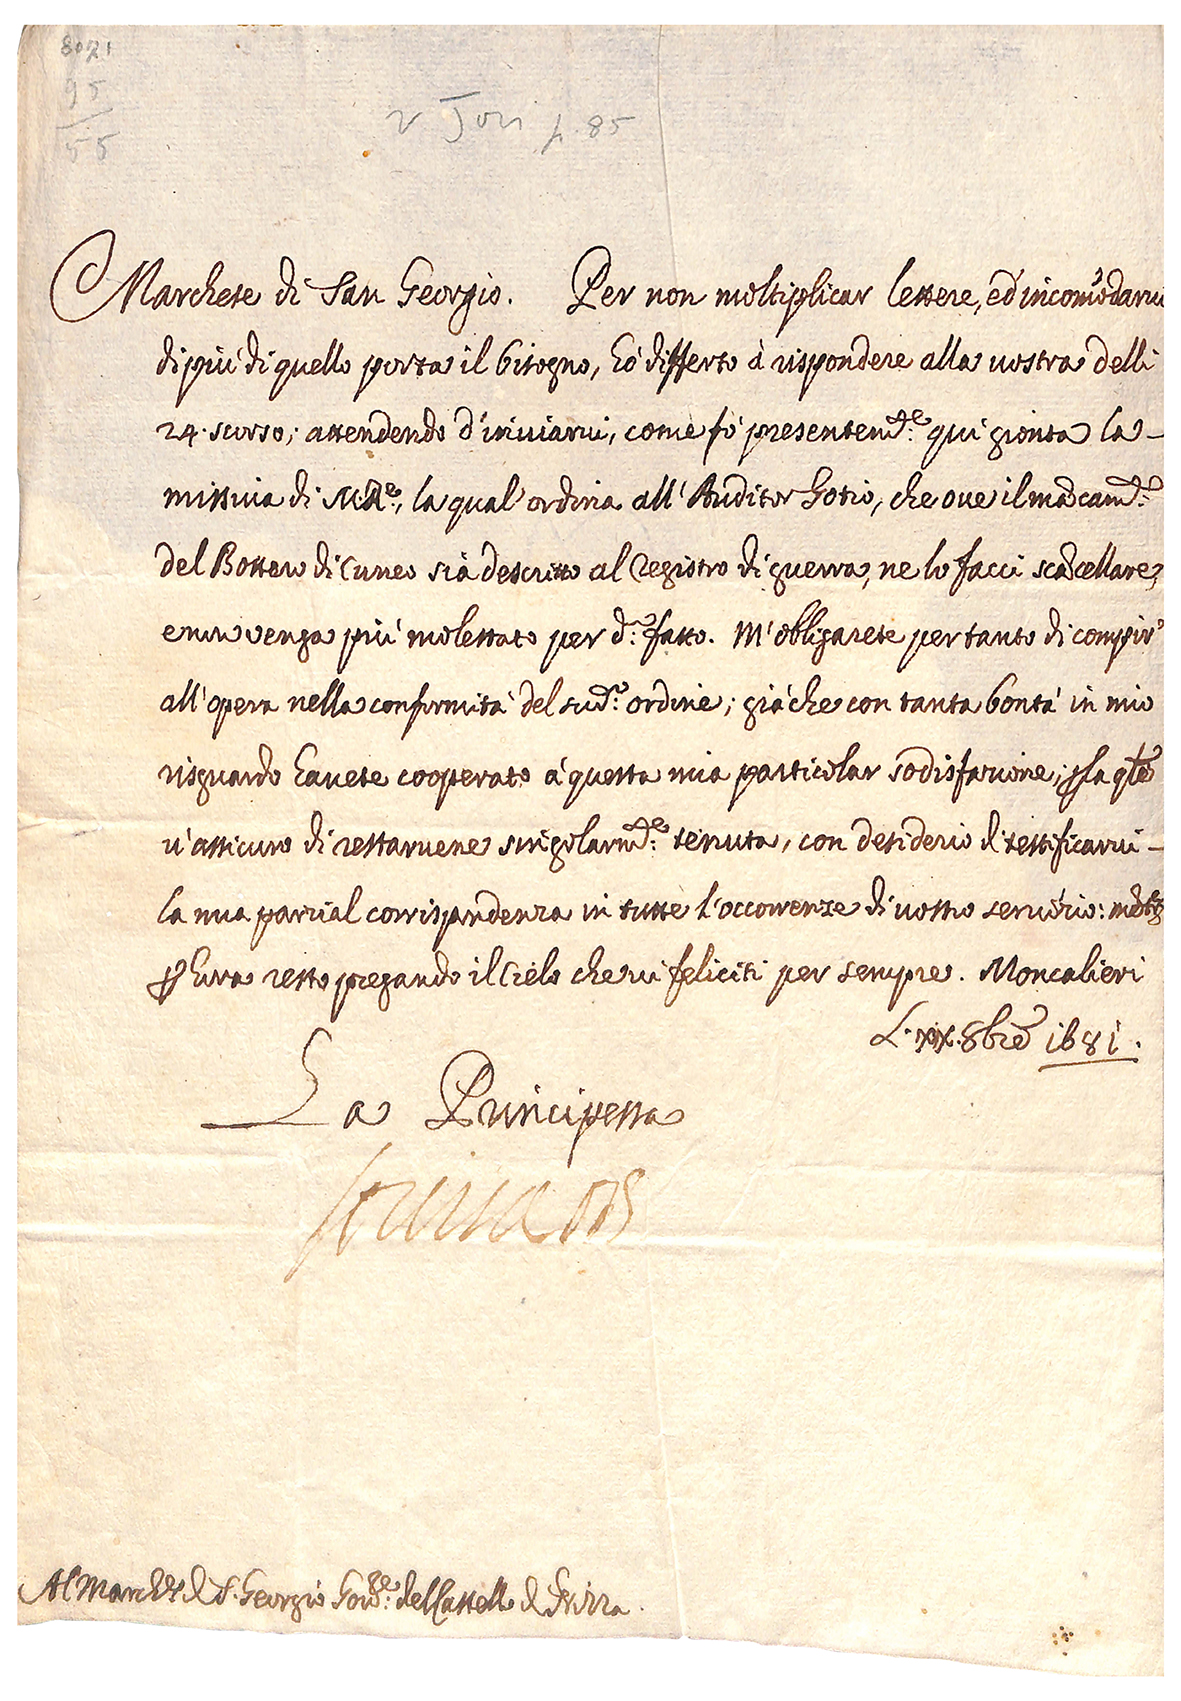 8021
95
55
v Jori p. 85
Marchese di San Georgio. Per non moltiplicar lettere, ed incomodarui
di più di quello porta il bisogno, hò differto à rispondere alla vostra delli
24. scorso; attendendo d'inuiarui, come fò presentem.te qui gionta la
missiua di M.R.e, la qual' ordina all' Auditor Gotio, che oue il mãcam.to
del Bottero di Cuneo sia descritto al Registro di guerra, ne lo facci scãcellare,
e non venga più molestato per d.o fatto. M'obligarete pertanto di compir'
all' opera nella conformità del sud.o ordine; già che con tanta bontà in mio
risguardo hauete cooperato à questa mia particolar sodisfazione; p la qle
u'assicuro di restaruene singolarm.te tenuta, con desiderio di testificarui
la mia parzial corrispondenza in tutte l'occorrenze di uostro seruizio:
p hora resto pregando il Cielo che ui feliciti per sempre. Moncalieri
L. xix. 8bre 1681.
La Principessa
Al March.e di S. Georgio Gou.re del Castello di Nizza.